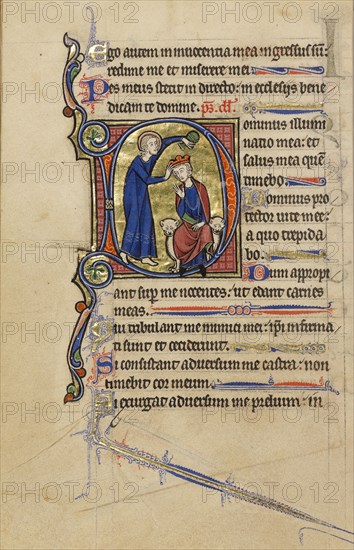 Ego autem in innocentia mea ingressus sū:
redime me et miserere mei
Pes meus stetit in directo: in ecclesijs bene
dicam te domine. ps. dd.
Dominus illumi
natio mea: et
salus mea quē
timebo.
Dominus pro
tector uite mee:
a quo trepida
bo.
Dum appropi
ant sup me nocentes: ut edant carnes
meas.
Qui tribulant me inimici mei: ipī infirma
ti sunt et ceciderunt.
Si consistant aduersum me castra: non
timebit cor meum.
Si exurgat aduersum me prelium: in
PHOTO12